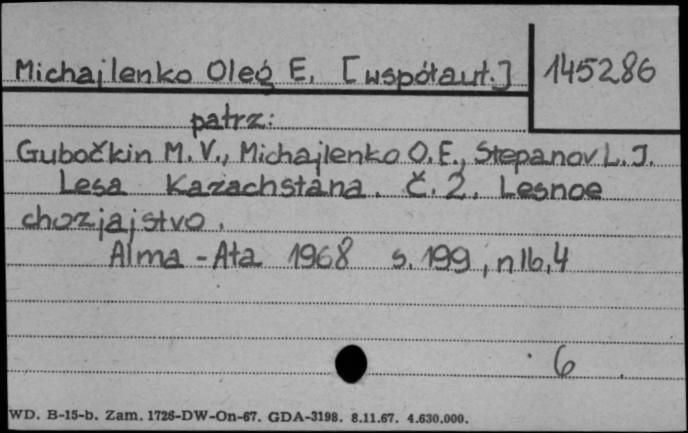 Michajlenko Oleg E. [współaut.] 145286
patrz:
Gubočkin M. V., Michajlenko O. E., Stepanov L. I.
Lesa Kazachstana. Č. 2. Lesnoe
chozjajstvo.
Alma-Ata 1968 s. 199, nlb, 4
6
WD. B-15-b. Zam. 1726-DW-On-67. GDA-3198. 8.11.67. 4.630.000.